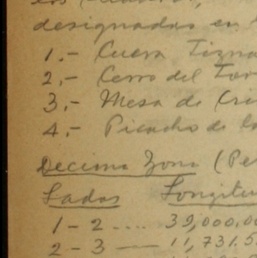 designadas en
1.- Cueva Tizna
2.- Cerro del Tor
3.- Mesa de Cri
4.- Picacho de la
Decima Zona (Pe
Lados Longitu
1-2 .... 39,000.00
2-3 — 11,731.5